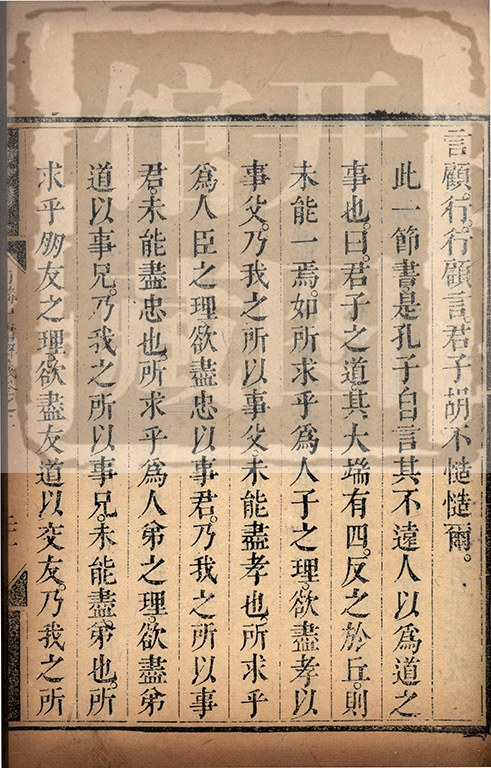 言顧行。行顧言。君子胡不慥慥爾。
此一節書。是孔子自言其不遠人以為道之
事也。曰。君子之道。其大端有四。反之於丘。則
未能一焉。如所求乎為人子之理。欲盡孝以
事父。乃我之所以事父。未能盡孝也。所求乎
為人臣之理。欲盡忠以事君。乃我之所以事
君。未能盡忠也。所求乎為人弟之理。欲盡弟
道以事兄。乃我之所以事兄。未能盡弟也。所
求乎朋友之理。欲盡友道以交友。乃我之所